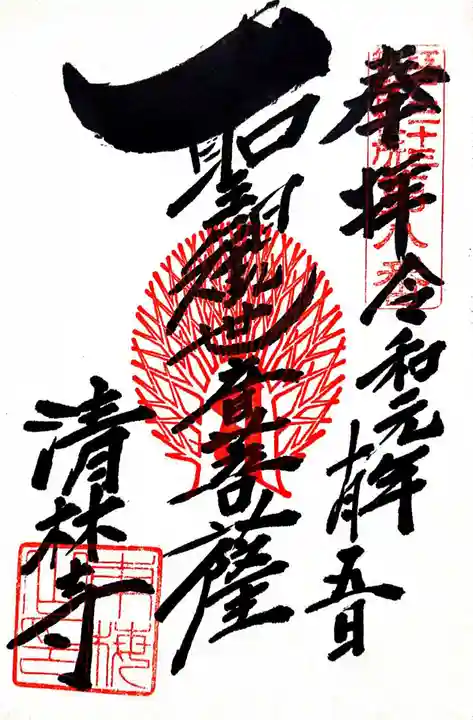 奉拝 令和元年 十月 五日
聖観世音菩薩
清林寺